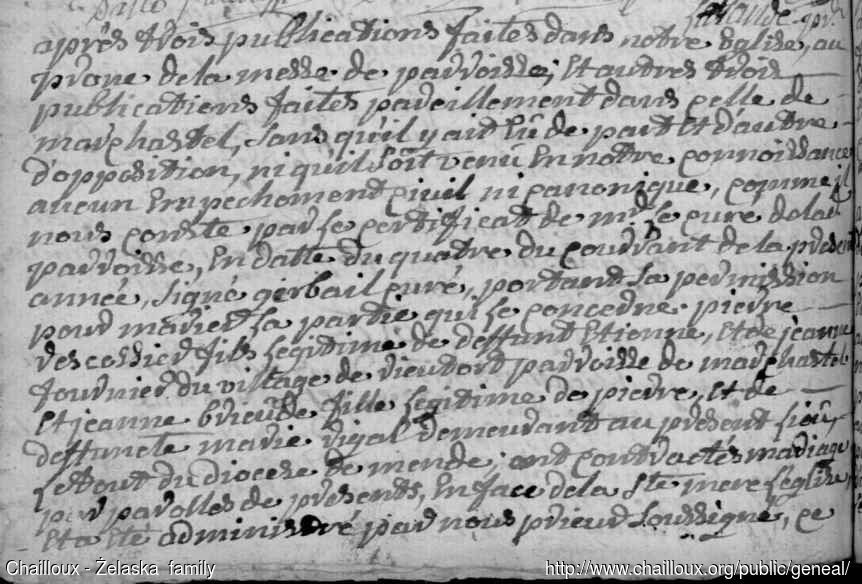 après trois publications faites dans notre Eglise, au
prone de la messe de parroisse, Et autres trois
publications faites pareillement dans celle de
marchastel, sans qu'il y ait Eû de part Et d'autre
d'opposition, ni qu'il soit venû En notre connoissance
aucun Empechement civil ni canonique, comme il
nous conste par le certificat de mr le curé de la de
parroisse, En datte du quatre du courrant de la presente
année, signé gerbail curé, portant sa permission
pour marier la partie qui le concerne. pierre
vescossier fils legitime de deffunt Etienne, Et de jeanne
fournier du village de rieutort parroisse de marchastel
Et jeanne brieude fille legitime de pierre, Et de
deffuncte marie vigal demeurant au present lieû,
le tout du diocese de mende; ont contractés mariage
par parolles de presents, En face de la ste mere Eglise,
Et a Eté administré par nous prieur soussigné, ce
Chailloux - Żelaska family
http://www.chailloux.org/public/geneal/